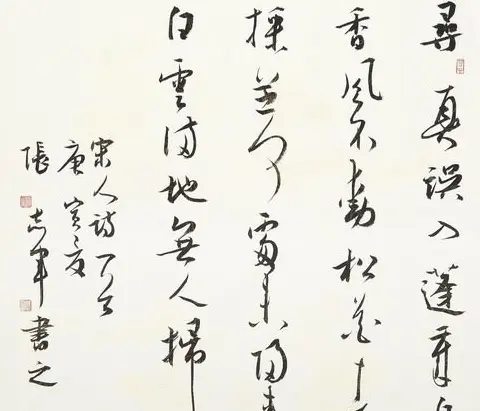 尋真誤入蓬莱
香風不動松花
採芝何處未歸
白雲满地無人掃
宋人詩一首
庚寅夏
張志军書之